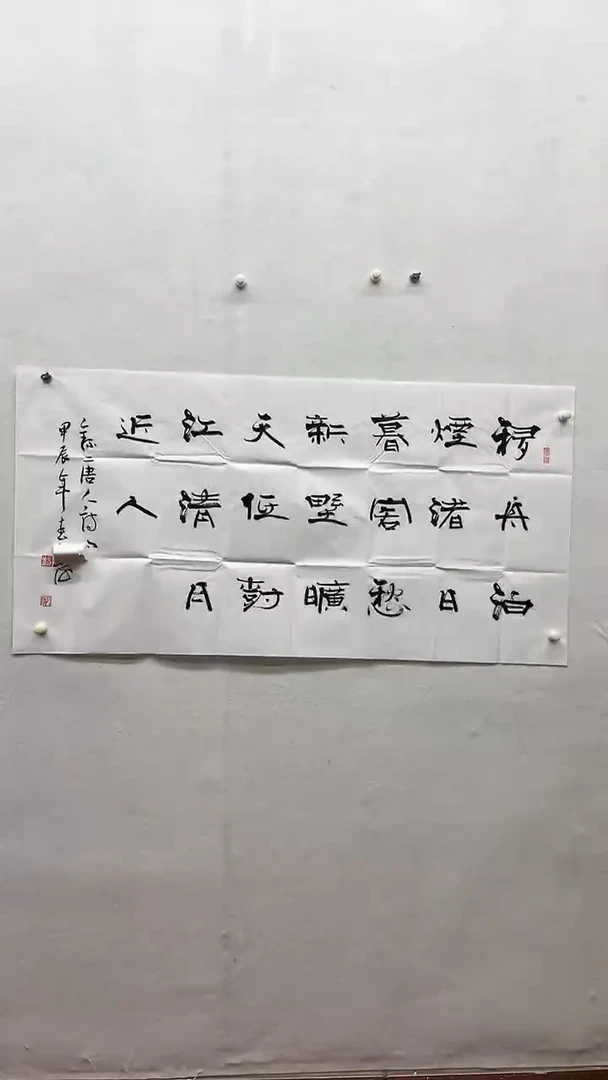 移舟泊
煙渚日
暮客愁
新墅曠
天低樹
江清月
近人
錄唐人詩
甲辰年春